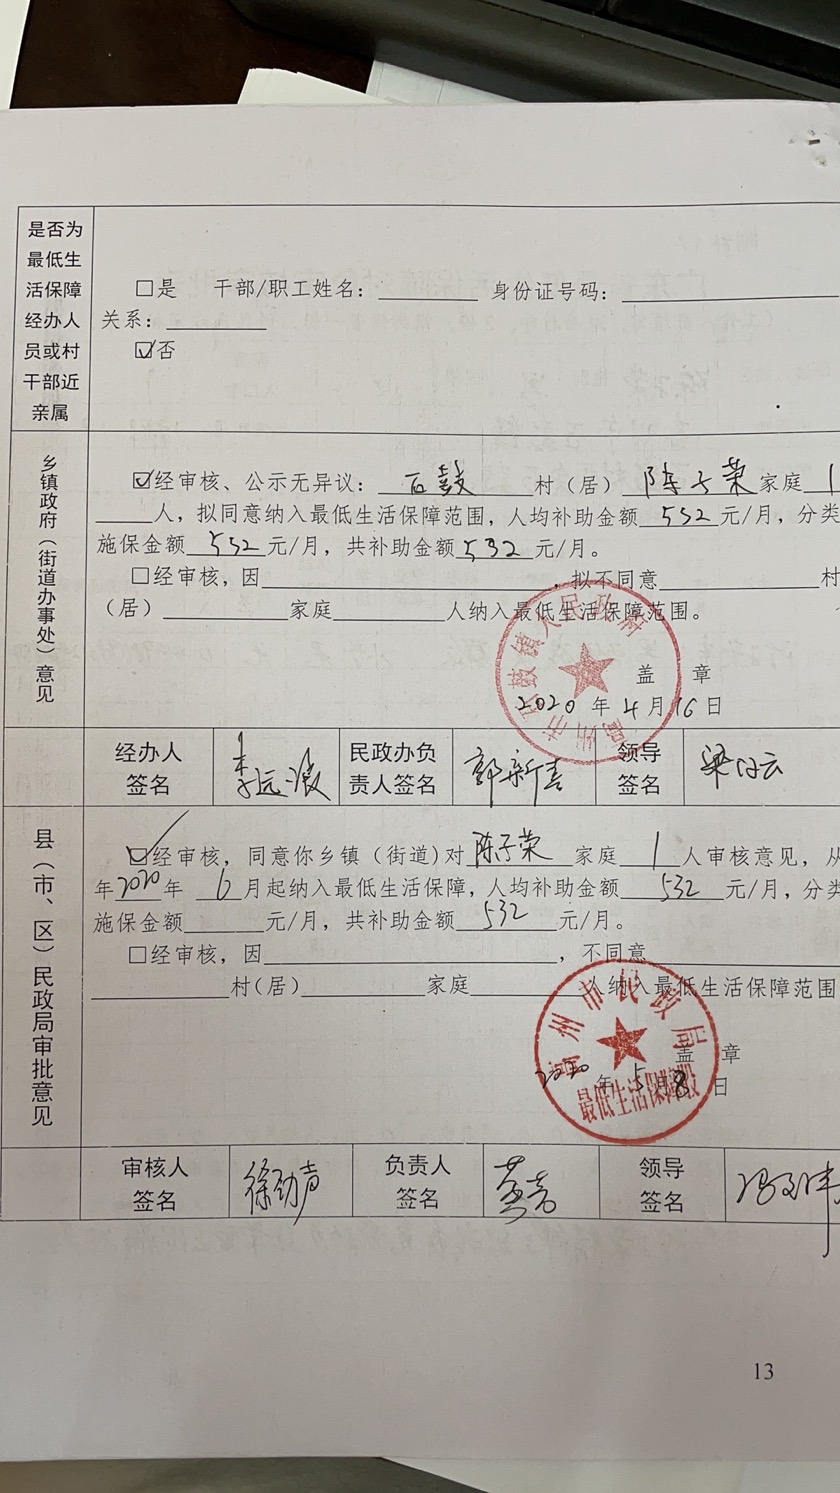 是否为
最低生
活保障
经办人
员或村
干部近
亲属
□是 干部/职工姓名：________ 身份证号码：________
关系：________
☑否
乡镇政府（街道办事处）意见
☑经审核、公示无异议：石鼓村（居）陈子荣家庭1
____人，拟同意纳入最低生活保障范围，人均补助金额532元/月，分类
施保金额532元/月，共补助金额532元/月。
□经审核，因________，拟不同意________村
（居）________家庭________人纳入最低生活保障范围。
高州市石鼓镇人民政府
盖 章
2020年4月16日
经办人
签名
民政办负
责人签名
郭新喜
领导
签名
县（市、区）民政局审批意见
☑经审核，同意你乡镇（街道)对陈子荣家庭1人审核意见，从
年2020年6月起纳入最低生活保障，人均补助金额532元/月，分类
施保金额______元/月，共补助金额532元/月。
□经审核，因________，不同意________
________村(居)________家庭________人纳入最低生活保障范围
高州市民政局
盖 章
2020年5月8日
最低生活保障股
审核人
签名
徐劲声
负责人
签名
领导
签名
13